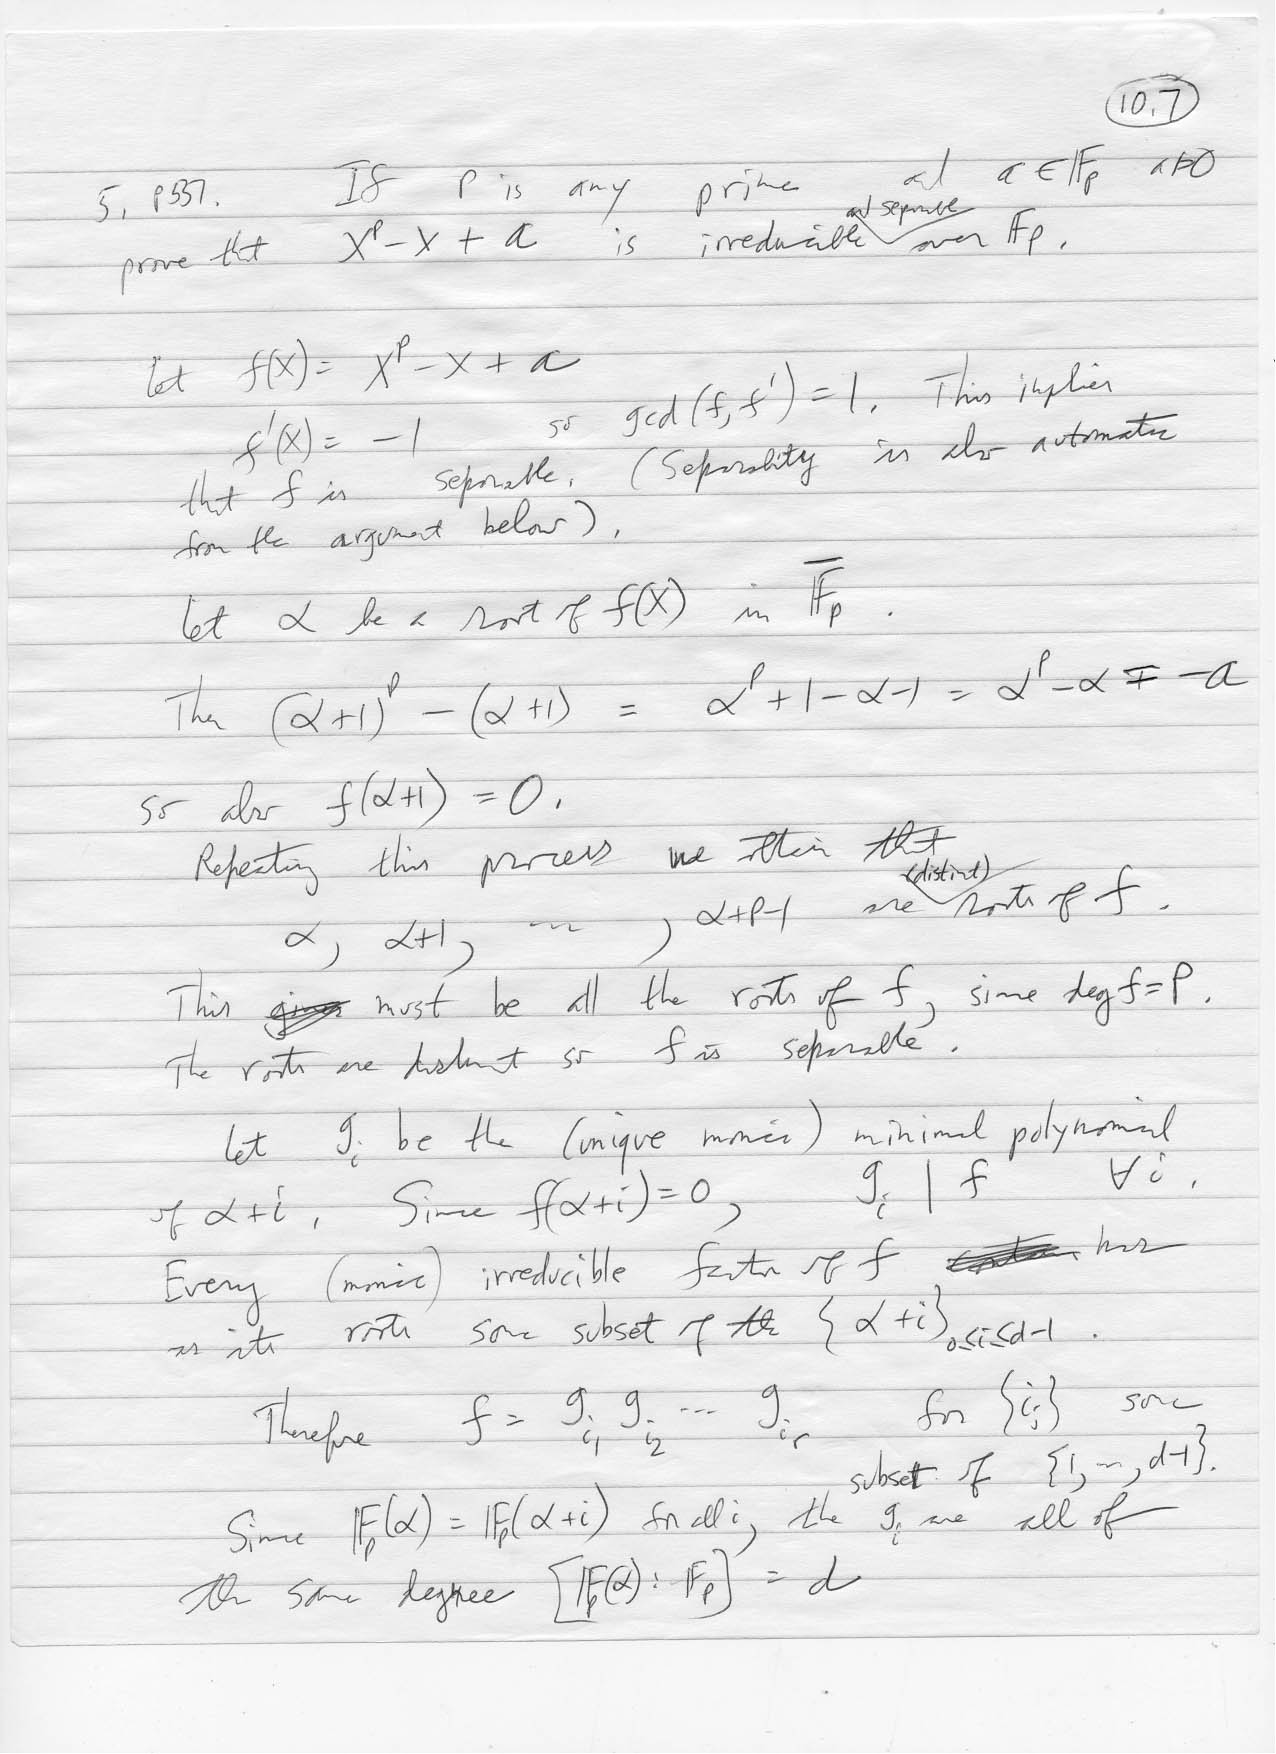 10.7
5, p557. If p is any prime and a ∈ 𝔽_p a≠0
and separable
prove that x^p - x + a is irreducible over 𝔽_p.
Let f(x) = x^p - x + a
f'(x) = -1 so gcd(f, f') = 1. This implies
that f is separable. (Separability is also automatic
from the argument below).
Let α be a root of f(x) in \overline{𝔽}_p.
Then (α+1)^p - (α+1) = α^p + 1 - α - 1 = α^p - α = -a
so also f(α+1) = 0.
Repeating this process we obtain that
(distinct)
α, α+1, ..., α+p-1 are roots of f.
This must be all the roots of f, since deg f = p.
The roots are distinct so f is separable.
Let g_i be the (unique monic) minimal polynomial
of α+i. Since f(α+i)=0, g_i | f ∀i.
Every (monic) irreducible factor of f has
as its roots some subset of the {α+i}_{0≤i≤d-1}.
Therefore f = g_{i_1} g_{i_2} ... g_{i_r} for {i_j} some
subset of {1, ..., d-1}.
Since 𝔽_p(α) = 𝔽_p(α+i) for all i, the g_i are all of
the same degree [𝔽_p(α) : 𝔽_p] = d